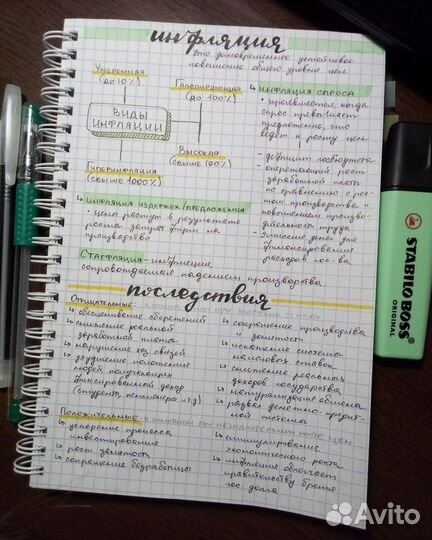 ИНФЛЯЦИЯ
Это долговременное устойчивое
повышение общего уровня цен
Умеренная
(до 10%)
Галопирующая
(до 100%)
ВИДЫ
ИНФЛЯЦИИ
Высокая
(свыше 100%)
Гиперинфляция
(свыше 1000%)
↳ ИНФЛЯЦИЯ СПРОСА
• проявляется, когда
спрос превышает
предложение, что
ведет к росту цен
- дефицит госбюджета
- опережающий рост
заработной платы
по сравнению с рос-
том производства и
повышением произво-
дительности труда
- эмиссия денег для
финансирования
расходов гос-ва
↳ ИНФЛЯЦИЯ ИЗДЕРЖЕК/ПРЕДЛОЖЕНИЯ
• цены растут в результате
роста затрат фирм на
производство
СТАГФЛЯЦИЯ - инфляция,
сопровождаемая падением производства
ПОСЛЕДСТВИЯ
Отрицательные: при высоких темпах
↳ обесценивание сбережений
↳ снижение реальной
заработной платы
↳ нарушение хоз. связей
↳ ухудшение положения
людей, получающих
фиксированный доход
(студенты, пенсионеры и т.д)
↳ сокращение производства
занятости
↳ искажение системы
налоговых ставок
↳ снижение реальных
доходов государства
↳ натурализация обмена
↳ развал денежно-кредит-
ной системы
Положительные: в основном при незначительном росте цен
↳ ускорение процесса
инвестирования
↳ рост занятости
↳ сокращение безработицы
↳ стимулирование
экономического роста
↳ инфляция облегчает
правительству бремя
гос. долга
STABILO BOSS
ORIGINAL
Avito